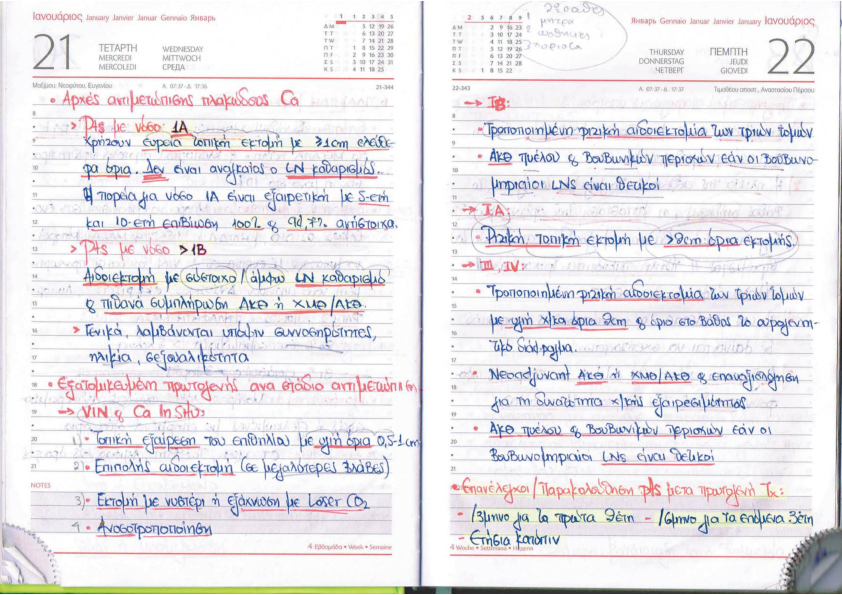 Ιανουάριος January Janvier Januar Gennaio Январь
21
ΤΕΤΑΡΤΗ WEDNESDAY
MERCREDI MITTWOCH
MERCOLEDI СРЕДА
Μαξίμου Νεοφύτου, Ευγενίου Α. 07:37 - Δ. 17:36 21-344
• Αρχές αντιμετώπισης πλακώδους Ca
> Pts με νόσο 1A
Χρήζουν ευρεία τοπική εκτομή με ≥1cm ελεύθε-
ρα όρια. Δεν είναι αναγκαίος ο LN καθαρισμός.
Η πορεία για νόσο 1A είναι εξαιρετική με 5-ετή
και 10-ετή επιβίωση 100% & 94,7% αντίστοιχα.
> Pts με νόσο >1B
Αιδοιεκτομή με σύστοιχο/άμφω LN καθαρισμό
& πιθανά συμπλήρωση ΑΚΘ ή ΧΜΘ/ΑΚΘ.
> Γενικά, λαμβάνονται υπόψιν συννοσηρότητες,
ηλικία, σεξουαλικότητα
• Εξατομικευμένη πρωτογενής ανα στάδιο αντιμετώπιση
→ VIN & Ca In Situ:
1) • Τοπική εξαίρεση του επιθηλίου με υγιή όρια 0,5-1cm
2) • Επιπολής αιδοιεκτομή (σε μεγαλύτερες βλάβες)
NOTES
3) • Εκτομή με νυστέρι ή εξάχνωση με Laser CO2
4 • Ανοσοτροποποίηση
4 Εβδομάδα • Week • Semaine
Январь Gennaio Januar Janvier January Ιανουάριος
22
THURSDAY ΠΕΜΠΤΗ
DONNERSTAG JEUDI
ЧЕТВЕРГ GIOVEDI
22-343 Α. 07:37 - Δ. 17:37 Τιμοθέου αποστ., Αναστασίου Πέρσου
→ IB:
• Τροποποιημένη ριζική αιδοιεκτομία των τριών τομών
• ΑΚΘ πυέλου & βουβωνικών περιοχών εάν οι βουβωνο-
μηριαίοι LNS είναι θετικοί
→ IA:
• Ριζική τοπική εκτομή με όρια εκτομής.
→ III, IV:
• Τροποποιημένη ριζική αιδοιεκτομία των τριών τομών
με υγιή χ/κα όρια & όριο στο βάθος το ουρογενη-
τικό διάφραγμα.
• Νεοαdjuvant ΑΚΘ ή ΧΜΘ/ΑΚΘ & επαναξιολόγηση
για τη δυνατότητα χ/κής εξαιρεσιμότητας
• ΑΚΘ πυέλου & βουβωνικών περιοχών εάν οι
βουβωνομηριαίοι LNS είναι θετικοί
• Επανέλεγχοι/Παρακολούθηση pts μετα πρωτογενή Tx:
- /3μηνο για τα πρώτα 2έτη - /6μηνο για τα επόμενα 3έτη
- Ετήσια κατόπιν
4 Woche • Settimana • Неделя